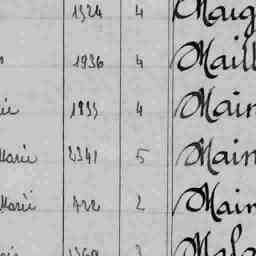 1924 4 Maig
1936 4 Maill
1933 4 Main
Marie 2341 5 Main
Marie 722 2 Main